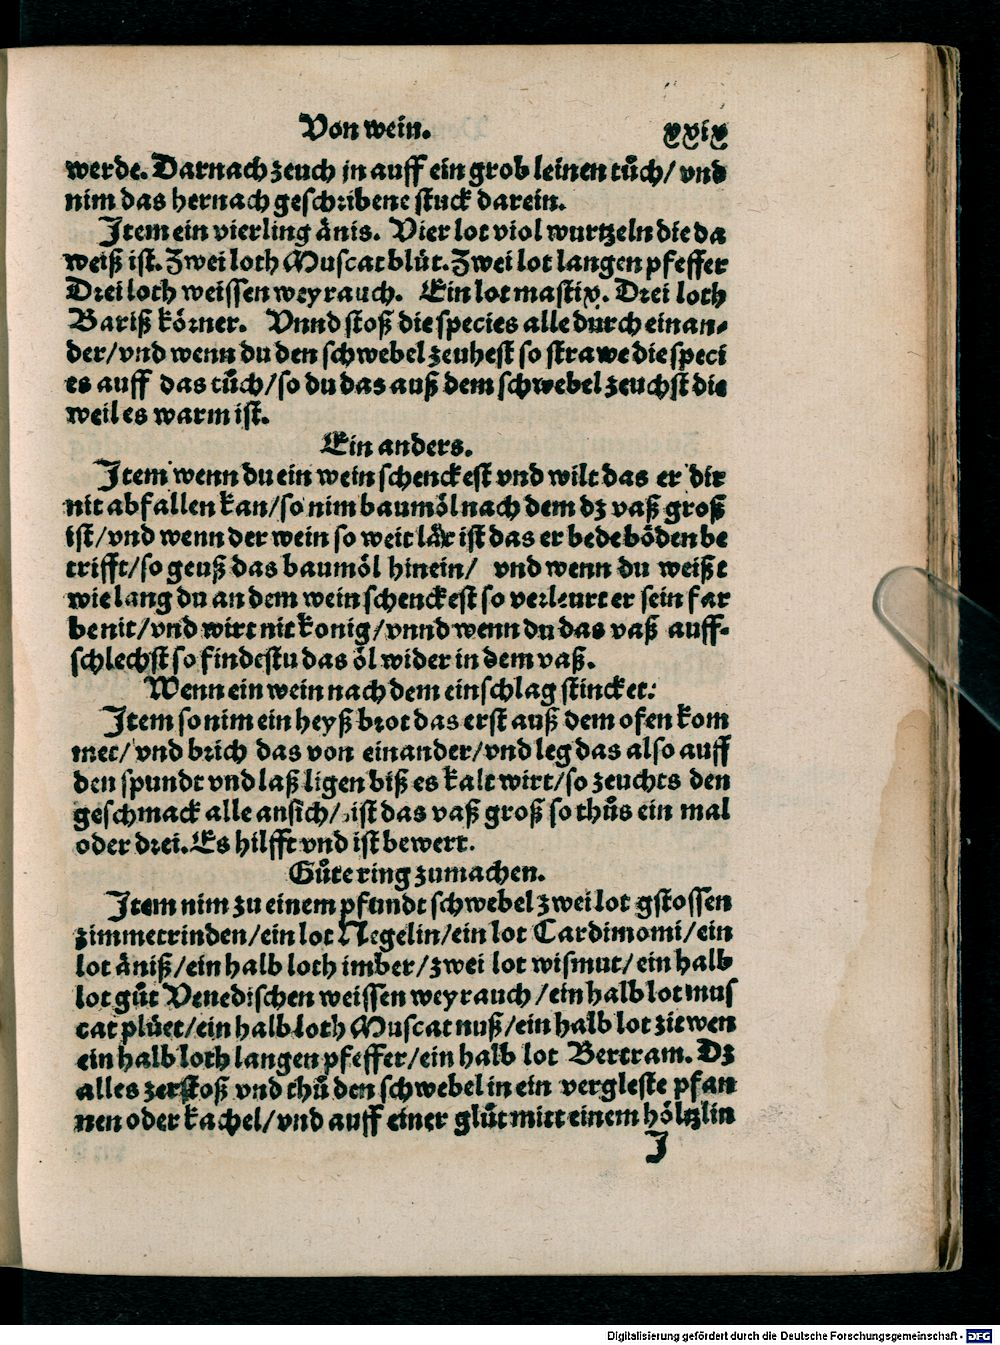 Von wein. xxix
werde. Darnach zeuch jn auff ein grob leinen tůch/ vnd
nim das hernach geschribene stuck darein.
Item ein vierling änis. Vier lot viol wurtzeln die da
weiß ist. Zwei loth Muscatblüt. Zwei lot langen pfeffer
Drei loth weissen weyrauch. Ein lot mastix. Drei loth
Bariß körner. Vnnd stoß die species alle durch einan-
der/vnd wenn du den schwebel zeuhest so strawe die speci
es auff das tůch/so du das auß dem schwebel zeuchst die
weil es warm ist.
Ein anders.
Item wenn du ein wein schenckest vnd wilt das er dir
nit abfallen kan/so nim baumöl nach dem dz vaß groß
ist/vnd wenn der wein so weit lär ist das er bede böden be
trifft/so geuß das baumöl hinein/ vnd wenn du weißt
wie lang du an dem wein schenckest so verleurt er sein far
be nit/vnd wirt nit konig/vnnd wenn du das vaß auff-
schlechst so findestu das öl wider in dem vaß.
Wenn ein wein nach dem einschlag stincket.
Item so nim ein heyß brot das erst auß dem ofen kom
met/ vnd brich das von einander/vnd leg das also auff
den spundt vnd laß ligen biß es kalt wirt/so zeuchts den
geschmack alle an sich/ ist das vaß groß so thůs ein mal
oder drei. Es hilfft vnd ist bewert.
Gůte ring zumachen.
Item nim zu einem pfundt schwebel zwei lot gstossen
zimmetrinden/ein lot Negelin/ein lot Cardimomi/ein
lot äniß/ein halb loth imber/zwei lot wismut/ein halb
lot gůt Venedischen weissen weyrauch/ein halb lot mus
cat plüet/ein halb loth Muscat nuß/ein halb lot zitwen
ein halb loth langen pfeffer/ein halb lot Bertram. Dz
alles zerstoß vnd thů den schwebel in ein vergleste pfan
nen oder kachel/vnd auff einer glůt mitt einem höltzlin
J
Digitalisierung gefördert durch die Deutsche Forschungsgemeinschaft - DFG